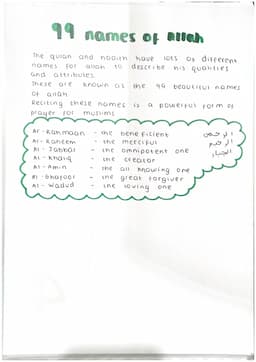 99 names of Allah
The quran and hadith have lots of different
names for allah to describe his qualities
and attributes.
These are known as the 99 beautiful names
of allah
Reciting these names is a powerful form of
prayer for muslims
Ar-Rahmaan - the beneficient الرحمن
Ar-Raheem - the merciful الرحيم
Al-Jabbar - the omnipotent one الجبار
Al-Khaliq - the creator
Al-Amin - the all knowing one
Al-Ghafoor - the great forgiver
Al-Wadud - the loving one